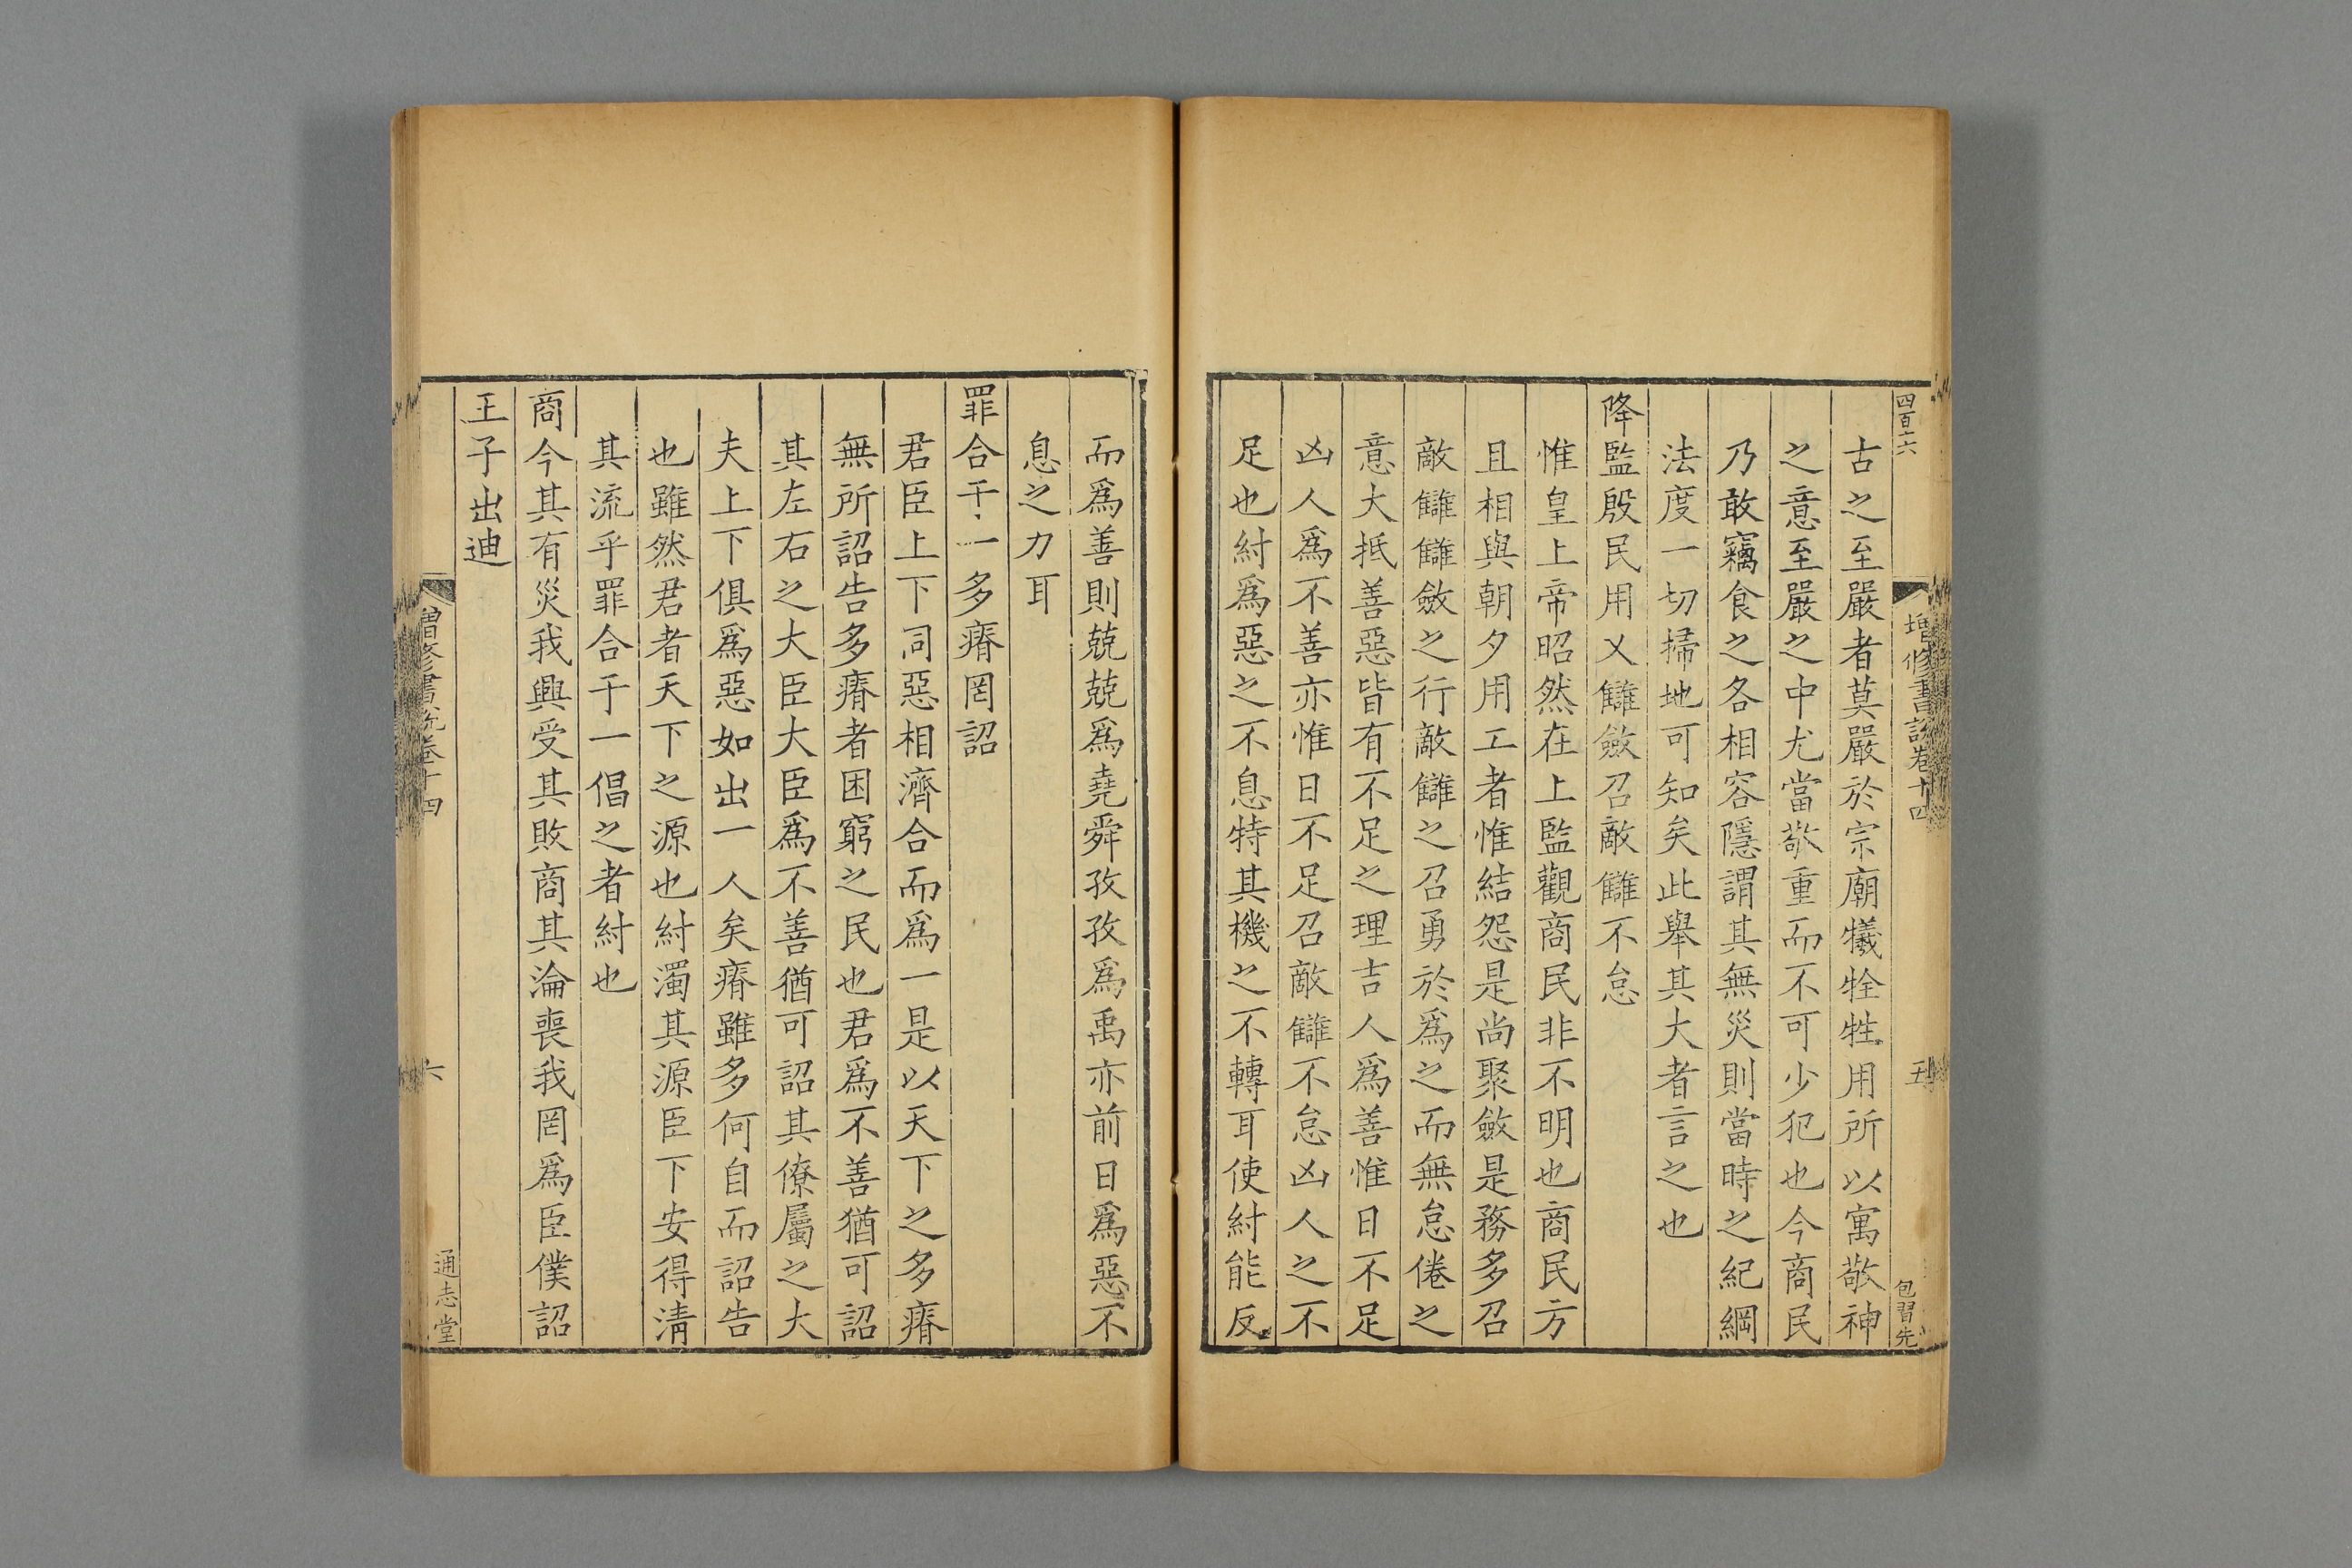 四百六
增修書說卷十四
五
包習先
古之至嚴者莫嚴於宗廟犧牷牲用所以寓敬神
之意至嚴之中尤當敬重而不可少犯也今商民
乃敢竊食之各相容隱謂其無災則當時之紀綱
法度一切掃地可知矣此舉其大者言之也
降監殷民用乂讎斂召敵讎不怠
惟皇上帝昭然在上監觀商民非不明也商民方
且相與朝夕用工者惟結怨是尚聚斂是務多召
敵讎讎斂之行敵讎之召勇於爲之而無怠倦之
意大抵善惡皆有不足之理吉人爲善惟日不足
凶人爲不善亦惟日不足召敵讎不怠凶人之不
足也紂爲惡之不息特其機之不轉耳使紂能反
而爲善則兢兢爲堯舜孜孜爲禹亦前日爲惡不
息之力耳
罪合于一多瘠罔詔
君臣上下同惡相濟合而爲一是以天下之多瘠
無所詔告多瘠者困窮之民也君爲不善猶可詔
其左右之大臣大臣爲不善猶可詔其僚屬之大
夫上下俱爲惡如出一人矣瘠雖多何自而詔告
也雖然君者天下之源也紂濁其源臣下安得清
其流乎罪合于一倡之者紂也
商今其有災我興受其敗商其淪喪我罔爲臣僕詔
王子出迪
增修書說卷十四
六
通志堂